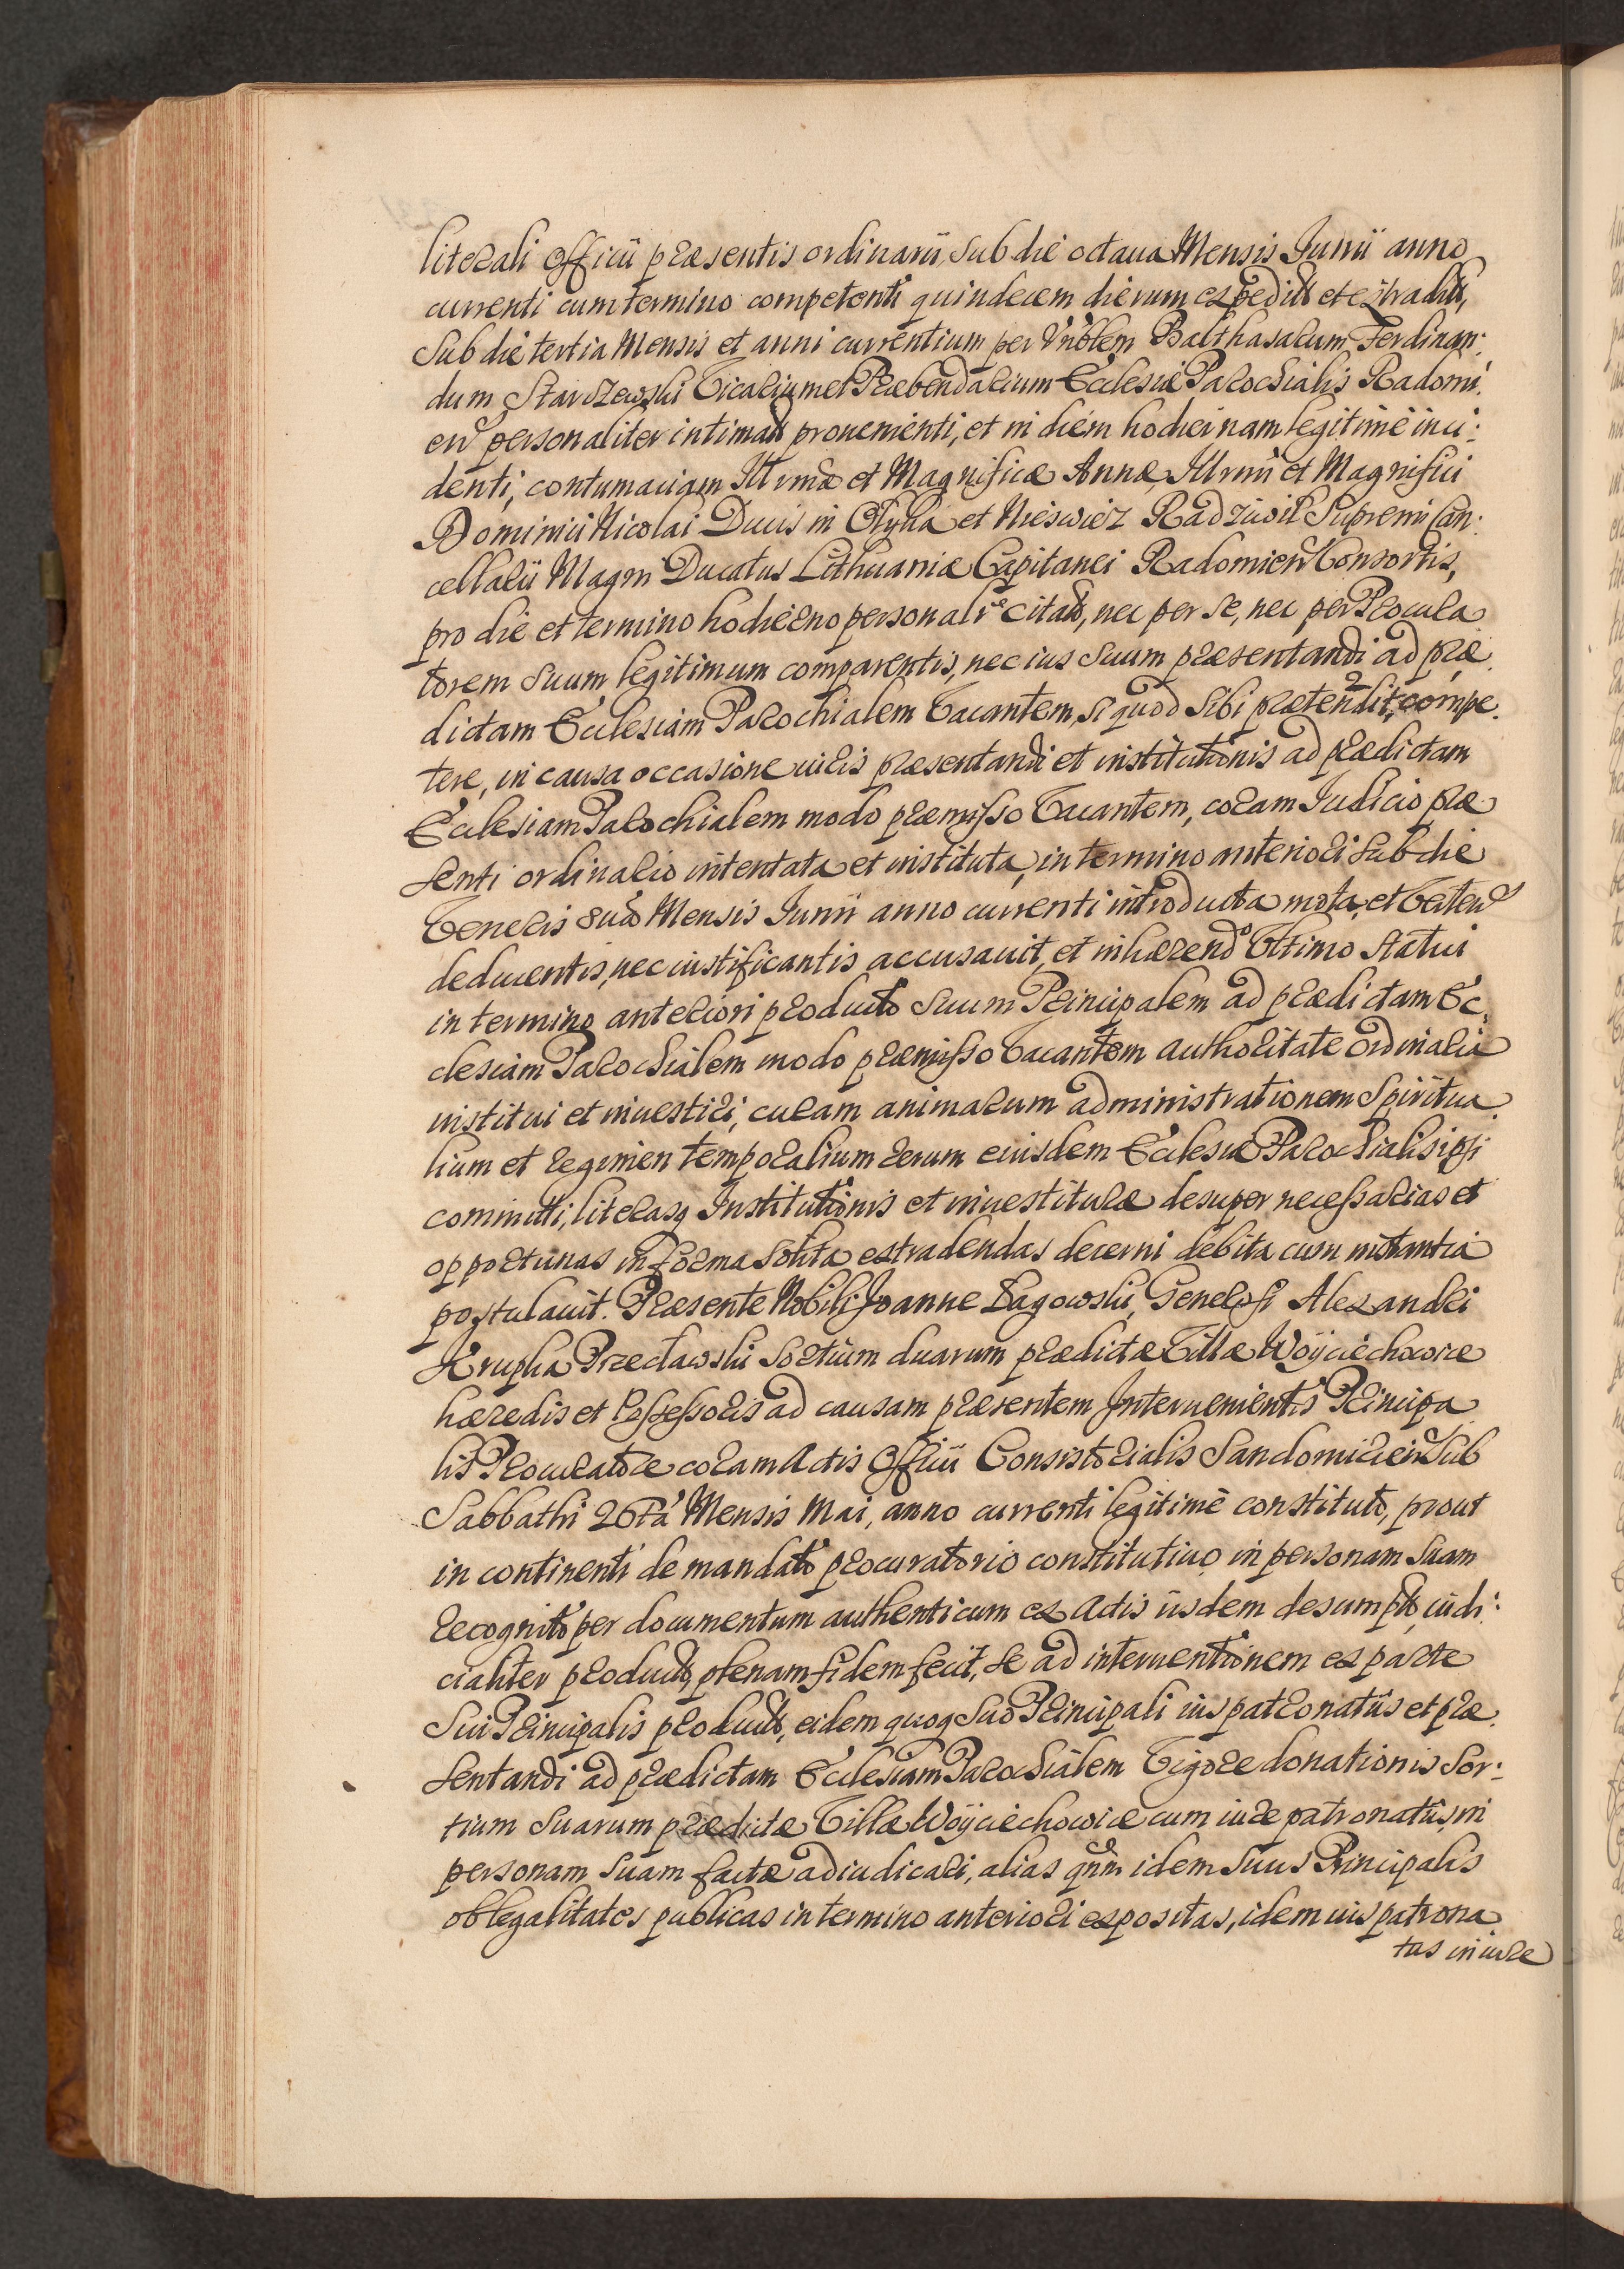 literali Officii præsentis ordinarii, sub die octaua Mensis Junii anno
currenti cum termino competenti quindecem dierum expedito et extradito,
sub die tertia Mensis et anni currentium per Vnblem Balthasarum Ferdinan:
dum Starczewski Vicarium et Præbendarium Ecclesiæ Parochialis Radomi:
en personaliter intimato prouenienti, et in diem hodiernam legitime inci:
denti, contumaciam Illrmæ et Magnificæ Annæ, Illrmi et Magnifici
Dominici Nicolai Ducis in Olyka et Nieswiez Radziwil Supremi Can:
cellarii Magni Ducatus Lithuaniæ Capitanei Radomien Consortis,
pro die et termino hodierno personalr citatæ, nec per se, nec per Procura
torem suum legitimum comparentis, nec ius suum præsentandi ad præ
dictam Ecclesiam Parochialem Vacantem, si quod sibi prætendit, compe.
tere, in causa occasione iuris præsentandi et institutionis ad prædictam
Ecclesiam Parochialem modo præmisso Vacantem, coram Judicio præ
senti ordinario intentata et instituta, in termino anteriori sub die
Veneris 8ua Mensis Junii anno currenti introducta mota, et Verten
deducentis, nec iustificantis accusauit, et inhærendo Vltimo statui
in termino anteriori producto suum Principalem ad prædictam Ec,
clesiam Parochialem modo præmisso Vacantem authoritate Ordinaria
institui et inuestiri, curam animarum administrationem Spiritua.
lium et regimen temporalium rerum eiusdem Ecclesiæ Parochialis ipsi
committi, literasq Institutionis et inuestituræ desuper necessarias et
opportunas in forma solita extradendas decerni debita cum instantia
postulauit. Præsente Nobili Joanne Łagowski, Generosi Alexandri
Krupka Przecławski Sortium duarum prædictæ Villæ Woyciechowice
hæredis et Possessoris ad causam præsentem Interuenientis Principa
lis Procuratore coram Actis Officii Consistorialis Sandomirien Sub
Sabbathi 26ta Mensis Mai, anno currenti legitime constituto, prout
in continenti de mandato procuratorio constitutiuo in personam suam
recognito per documentum authenticum ex Actis iisdem desumpto, iudi:
cialiter producto, plenam fidem fecit, se ad interuentionem ex parte
Sui Principalis producto, eidem quoq Suo Principali ius patronatus et præ.
sentandi ad prædictam Ecclesiam Parochialem Vigore donationis Sor:
tium Suarum prædictæ Villæ Woyciechowice cum iure patronatus, in
personam Suam factæ adiudicari, alias qnm idem Suus Principalis
ob legalitates publicas in termino anteriori expositas, idem ius patrona
tus in iure